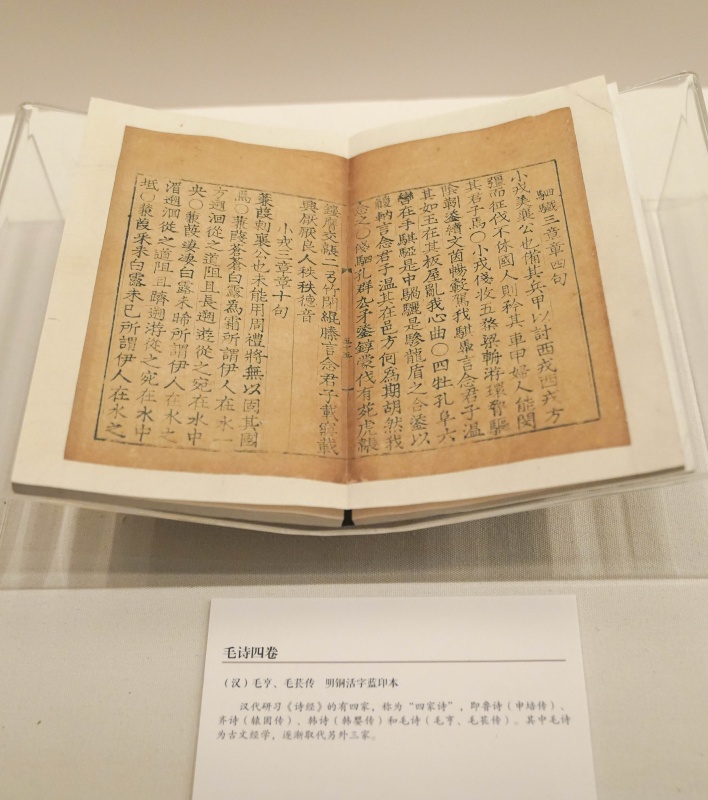 駟驖三章章四句
小戎美襄公也備其兵甲以討西戎西戎方
彊而征伐不休國人則矜其車甲婦人能閔
其君子焉〇小戎俴收五楘梁輈游環脅驅
陰靷鋈續文茵暢轂駕我騏馵言念君子溫
其如玉在其板屋亂我心曲〇四牡孔阜六
轡在手騏駵是中騧驪是驂龍盾之合鋈以
觼軜言念君子溫其在邑方何為期胡然我
念之〇俴駟孔群厹矛鋈錞蒙伐有苑虎韔
鏤膺交韔二弓竹閉緄縢言念君子載寢載
興厭厭良人秩秩德音
小戎三章章十句
蒹葭刺襄公也未能用周禮將無以固其國
焉〇蒹葭蒼蒼白露為霜所謂伊人在水一
方遡洄從之道阻且長遡遊從之宛在水中
央〇蒹葭淒淒白露未晞所謂伊人在水之
湄遡洄從之道阻且躋遡游從之宛在水中
坻〇蒹葭采采白露未已所謂伊人在水之
毛诗四卷
（汉）毛亨、毛苌传 明铜活字蓝印本
汉代研习《诗经》的有四家，称为“四家诗”，即鲁诗（申培传）、
齐诗（辕固传）、韩诗（韩婴传）和毛诗（毛亨、毛苌传）。其中毛诗
为古文经学，逐渐取代另外三家。